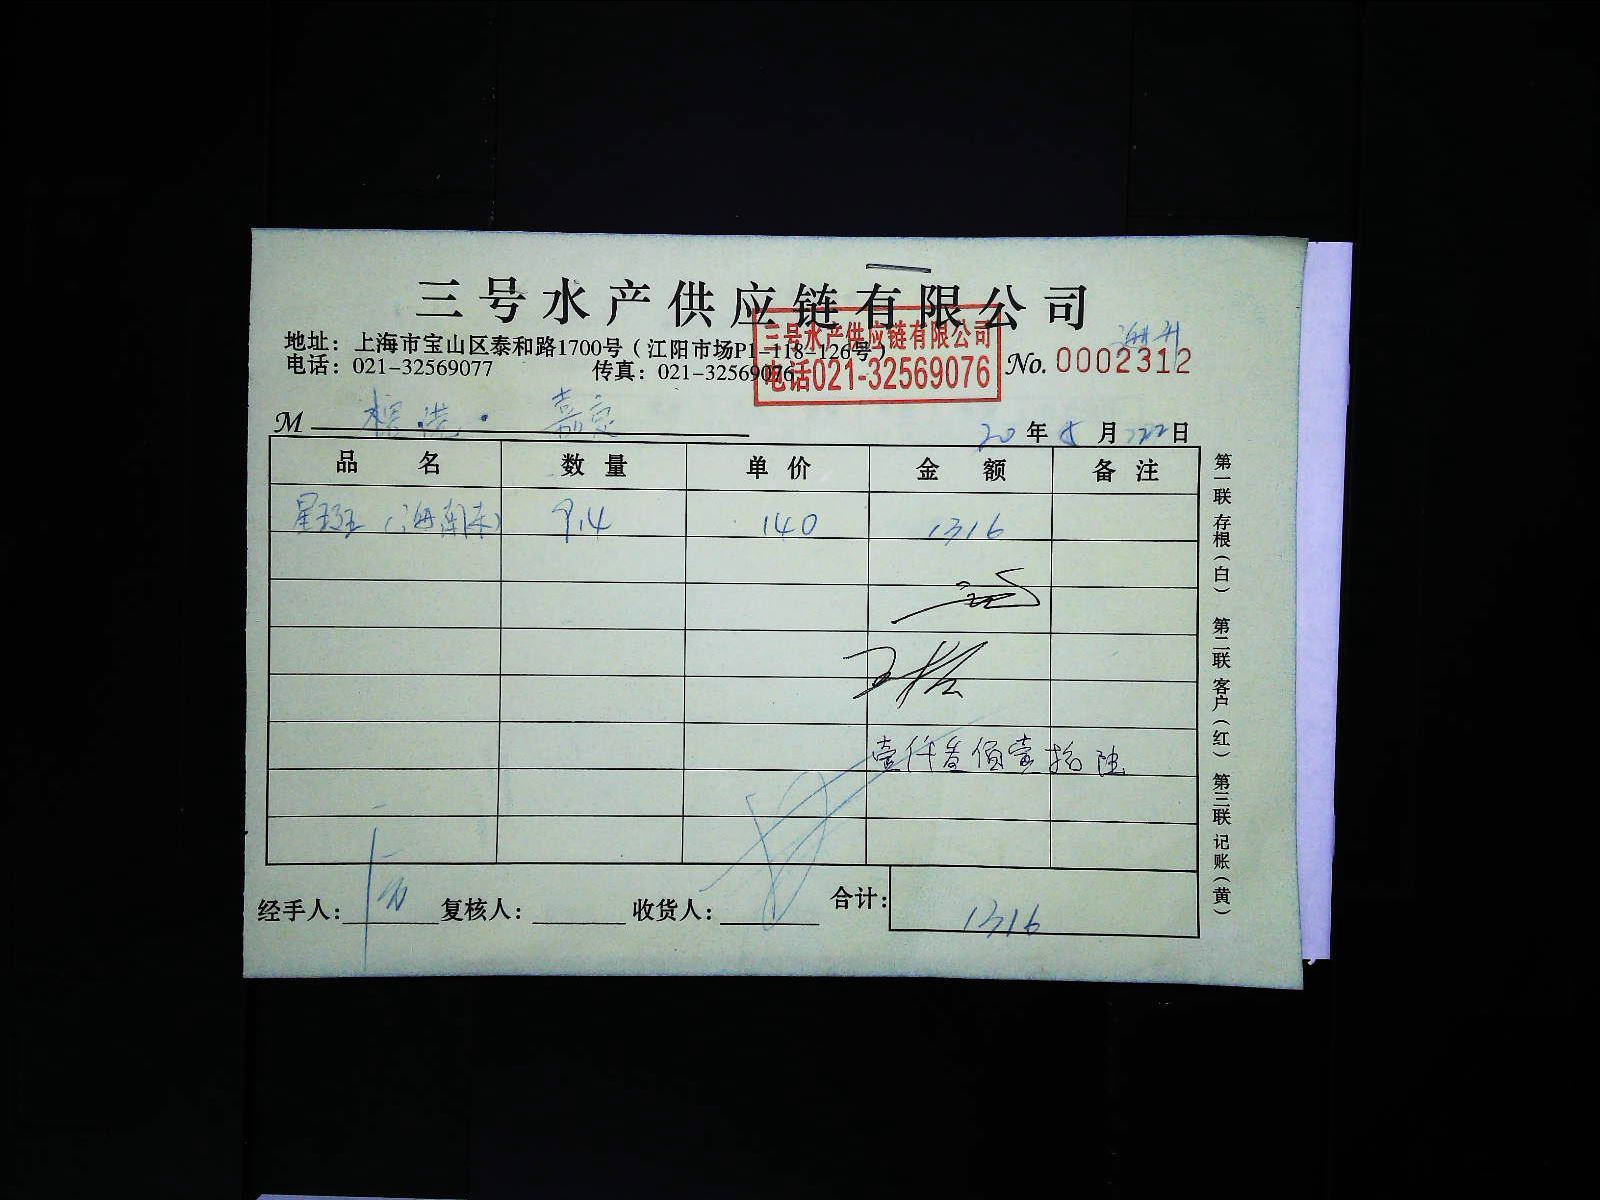 三号水产供应链有限公司
地址：上海市宝山区泰和路1700号（江阳市场P1-118-126号）
电话：021-32569077 传真：021-32569076
三号水产供应链有限公司
电话021-32569076
No. 0002312
M 嘉定
20 年 8 月 22 日
品名 数量 单价 金额 备注
星班（海南东） 9.4 140 1316
壹仟叁佰壹拾陆
经手人： 复核人： 收货人： 合计： 1316
第一联 存根（白） 第二联 客户（红） 第三联 记账（黄）